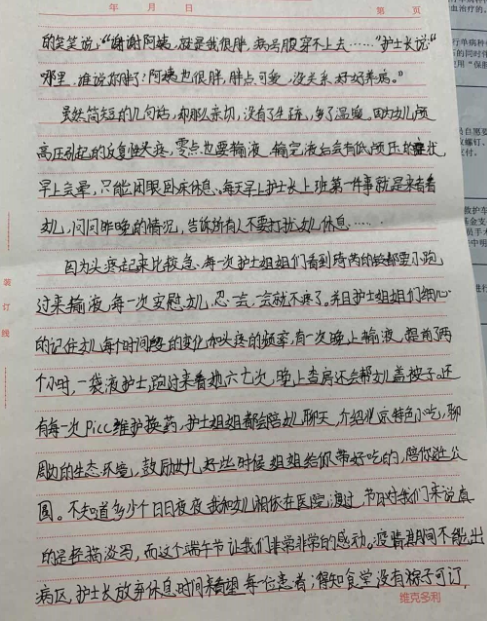 年 月 日 第 页
的笑笑说，“谢谢阿姨，就是我很胖，病号服穿不上去……”护士长说“
哪里，谁说你胖了？阿姨也很胖，胖点可爱，没关系好好养病。”
虽然简短的几句话，却那么亲切，没有了生疏，多了温暖，因为幼儿颅
高压引起的反复性头疼，零点也要输液，输完液后会有低颅压的症状
早上会晕，只能闭眼卧床休息、每天早上护士长上班第一件事就是来看看
幼儿，问问昨晚的情况，告诉所有人不要打扰幼儿休息……
因为头疼起来比较急，每一次护士姐姐们看到
过来输液，每一次安慰幼儿，忍一会，一会就不疼了。并且护士姐姐们细心
的记住幼儿每个时间段的变化和头疼的频率，有一次晚上输液，提前了两
个小时，一袋液护士跑过来看她六七次，晚上查房还会帮幼儿盖被子，还
有每一次picc维护换药，护士姐姐都会陪幼儿聊天，介绍北京特色小吃，聊
周边的生态环境，鼓励幼儿好些时候姐姐给你带好吃的，陪你逛公
园。不知道多少个日日夜夜我和幼儿相依在医院渡过，节日对我们来说真
的是轻描淡写，而这个端午节让我们非常非常的感动。疫情期间不能出
病区，护士长放弃休息时间来看望每一位患者；得知食堂没有粽子可订，
装订线
维克多利